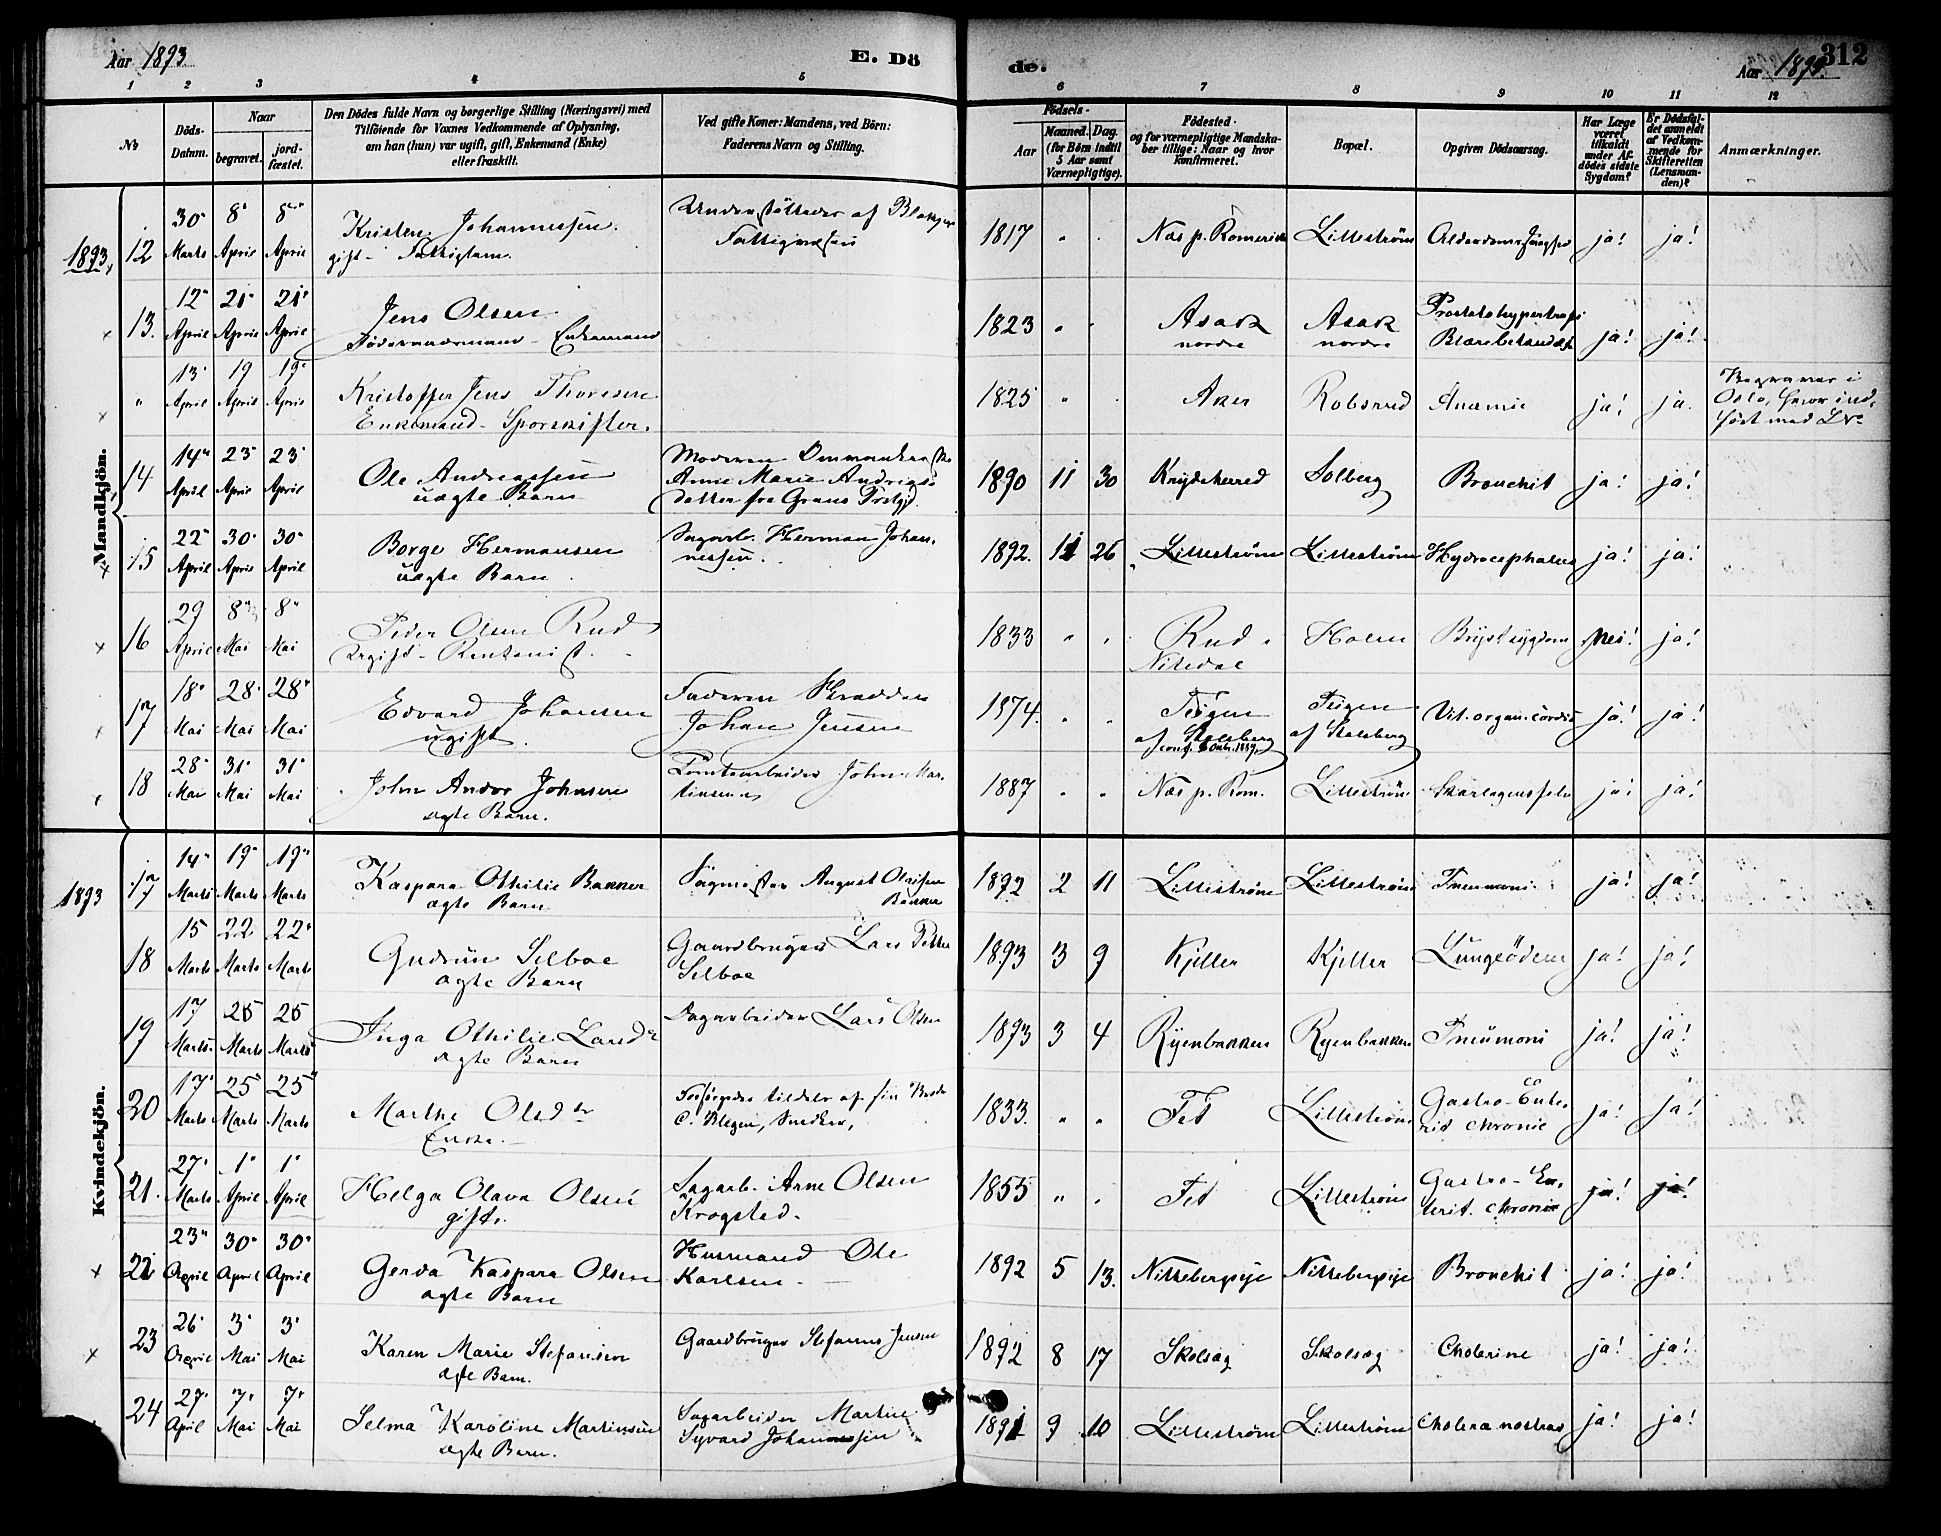 Aar 1893
E. Dö
de.
Aar 1893.
312
1 2 3 4 5 6 7 8 9 10 11 12
No
Döds-
Datum.
Naar
begravet.
jord-
fæstet.
Den Dödes fulde Navn og borgerlige Stilling (Næringsvei) med
Tilföiende for Voxnes Vedkommende af Oplysning,
om han (hun) var ugift, gift, Enkemand (Enke)
eller fraskilt.
Ved gifte Koner: Mandens, ved Börn:
Faderens Navn og Stilling.
Födsels-
Aar
Maaned. Dag.
(for Börn indtil
5 Aar samt
Værnepligtige).
Födested
og for værnepligtige Mandska-
ber tillige: Naar og hvor
konfirmeret.
Bopæl.
Opgiven Dödsaarsag.
Har Læge
været
tilkaldt
under Af-
dödes sidste
Sygdom?
Er Dödsfal-
det anmeldt
af Vedkom-
mende for
Skifteretten
(Lensman-
den)?
Anmærkninger.
Mandkjön.
1893,
12 30 Marts 8 April 8 April Kristen Johannessen. 1817 " Næs p. Romerike Lilleström ja! ja!
gift - Fattiglem.
13. 12 April 21 April 21 April Jens Olsen 1823 " Asak nordre Asak nordre Prostatahypertrofi ja! ja!
Föderaadsmand - Enkemand
" 13 April 19 April 19 April Kristoffer Jens Thoresen 1825 " Aker Robsrud Anæmie ja! ja.
Enkemand - Sporskifter.
Begraves i
Oslo, hvor ind-
fört med No
14 14 April 23 April 23 April Ole Andreassen 1890 11 30 Kryds­herred Solberg Bronchit ja! ja!
uægte Barn
Anne Marie Andreas-
datter fra Grans Prstgjd.
15 22 April 30 April 30 April Borge Hermansen Sagarb. Herman Johan- 1892. 11 26 Lilleström Lilleström Hydrocephalus ja! ja!
nessen.
uægte Barn
16 29 April 8 Mai 8 Mai Peder Olsen Rud 1833 " " Rud Nitedal Holm Brystsygdom Nei! ja!
Ugift - Rentenist.
17 18 Mai 28 Mai 28 Mai Edvard Johansen Faderen Skrædder 1874. " " Teigen Teigen Vit. organ. cordis ja! ja!
ugift. Johan Jensen af Skedsberg af Skedsberg
18 28 Mai 31 Mai 31 Mai John Andor Johnsen Tomtearbeider John Mar- 1887 " " Næs p. Rom. Lilleström Skarlagensfeber ja! ja!
ægte Barn. tinsen
Kvindekjön.
1893
17 14 Marts 19 Marts 19 Marts Kaspara Othilie Bakker Sagmester August Olaisen 1892 2 11 Lilleström Lilleström Pneumoni ja! ja!
ægte Barn Bakker
18 15 Marts 22 Marts 22 Marts Gudrun Selboe Gaardbruger Lars Petter 1893 3 9 Kjeller Kjeller Lungeödem ja! ja!
ægte Barn Selboe
19 17 Marts 25 Marts 25 Marts Inga Othilie Larsdr Dagarbeider Lars Olsen 1893 3 4 Ryenbakken Ryenbakken Pneumoni ja! ja!
ægte Barn
20 17 Marts 25 Marts 25 Marts Marthe Olsdtr 1833. " " Fet Lilleström Gastro-Ente- ja! ja!
Enke. Snedker, rit chronic
21. 27 Marts 1 April 1 April Helga Olava Olsen Sagarb. Arne Olsen 1855 " " Fet Lilleström Gastro-En- ja! ja!
gift. Krogsted. terit. chronic
22 23 April 30 April 30 April Gerda Kaspara Olsen Husmand Ole 1892 5 13. Nitteberg­eie Nitteberg­eie Bronchit ja! ja!
ægte Barn Karlsen
23 26 April 3 Mai 3 Mai Karen Marie Stefansen Gaardbruger Stefanus Jensen 1892 8 17 Skolsæg Skolsæg Cholerine ja! ja!
ægte Barn.
24 27 April 7 Mai 7 Mai Selma Karoline Martinsen Sagarbeider Martin 1891 9 10 Lilleström Lilleström Cholera nostras ja! ja!
ægte Barn. Syvard Johannessen